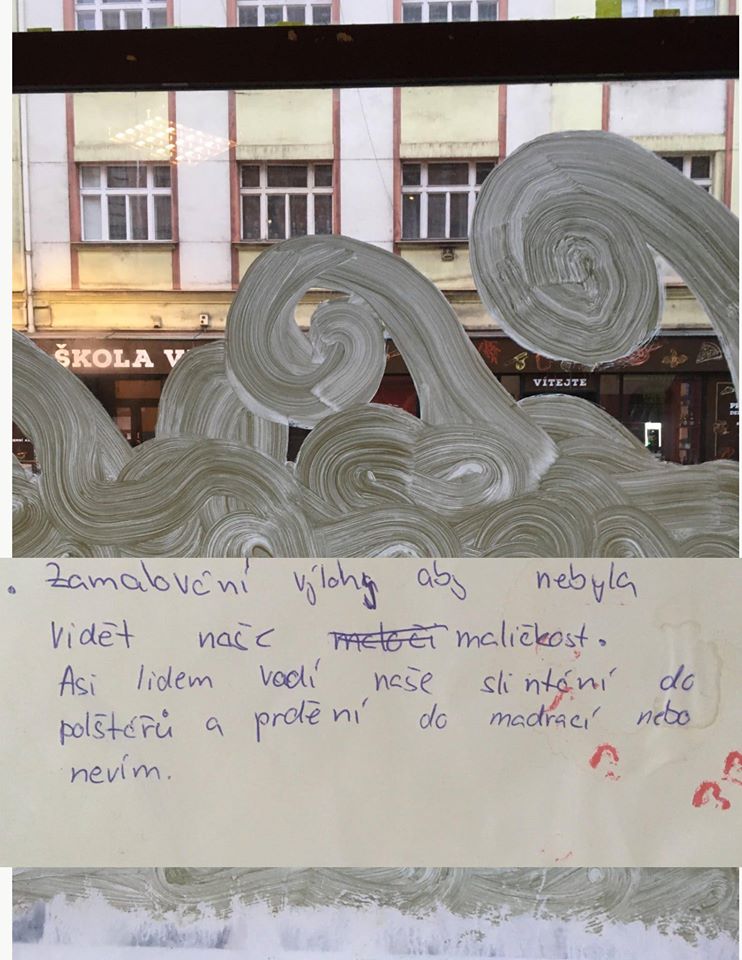 ŠKOLA V
VÍTEJTE
. Zamalování výlohy aby nebyla
vidět naše maličkost.
Asi lidem vadí naše slintání do
polštářů a prdění do madrací nebo
nevím.